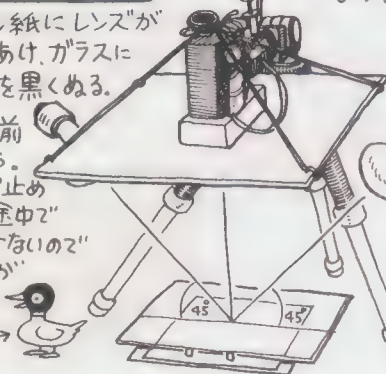 し紙にレンズが
あけ、ガラスに
を黒くぬる.
前
止め
途中で
ないので
が
45°
45°